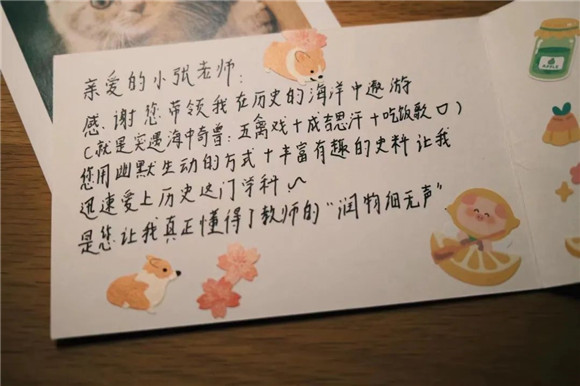 亲爱的小张老师：
感谢您带领我在历史的海洋中遨游
(就是突遇海中奇兽：五禽戏+成吉思汗+吃饭歌口)
您用幽默生动的方式+丰富有趣的史料让我
迅速爱上历史这门学科～
是您让我真正懂得了教师的“润物细无声”
APPLE